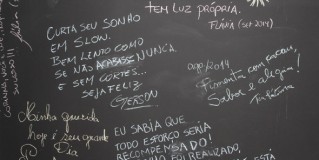 TEM LUZ PRÓPRIA.
FLÁVIA (SET 2014)
CURTA SEU SONHO
EM SLOW.
BEM LENTO COMO
SE NÃO ACABASSE NUNCA.
E SEM CORTES...
SEJA FELIZ
GERSON
ago/2014
Pimenta com cacau,
Sabor e alegria!
Minha querida
hoje é seu grande
Dia
EU SABIA QUE
TODO ESFORÇO SERIA
RECOMPENSADO!
FOI REALIZADO,